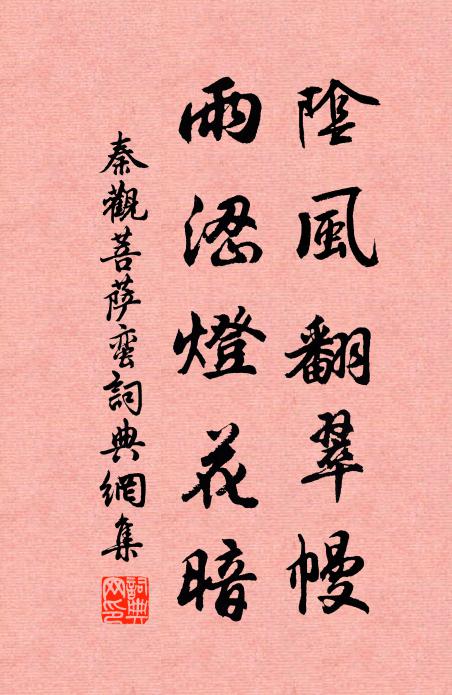 陰風翻翠幔
雨澀燈花暗
秦觀菩薩蛮詞典網集